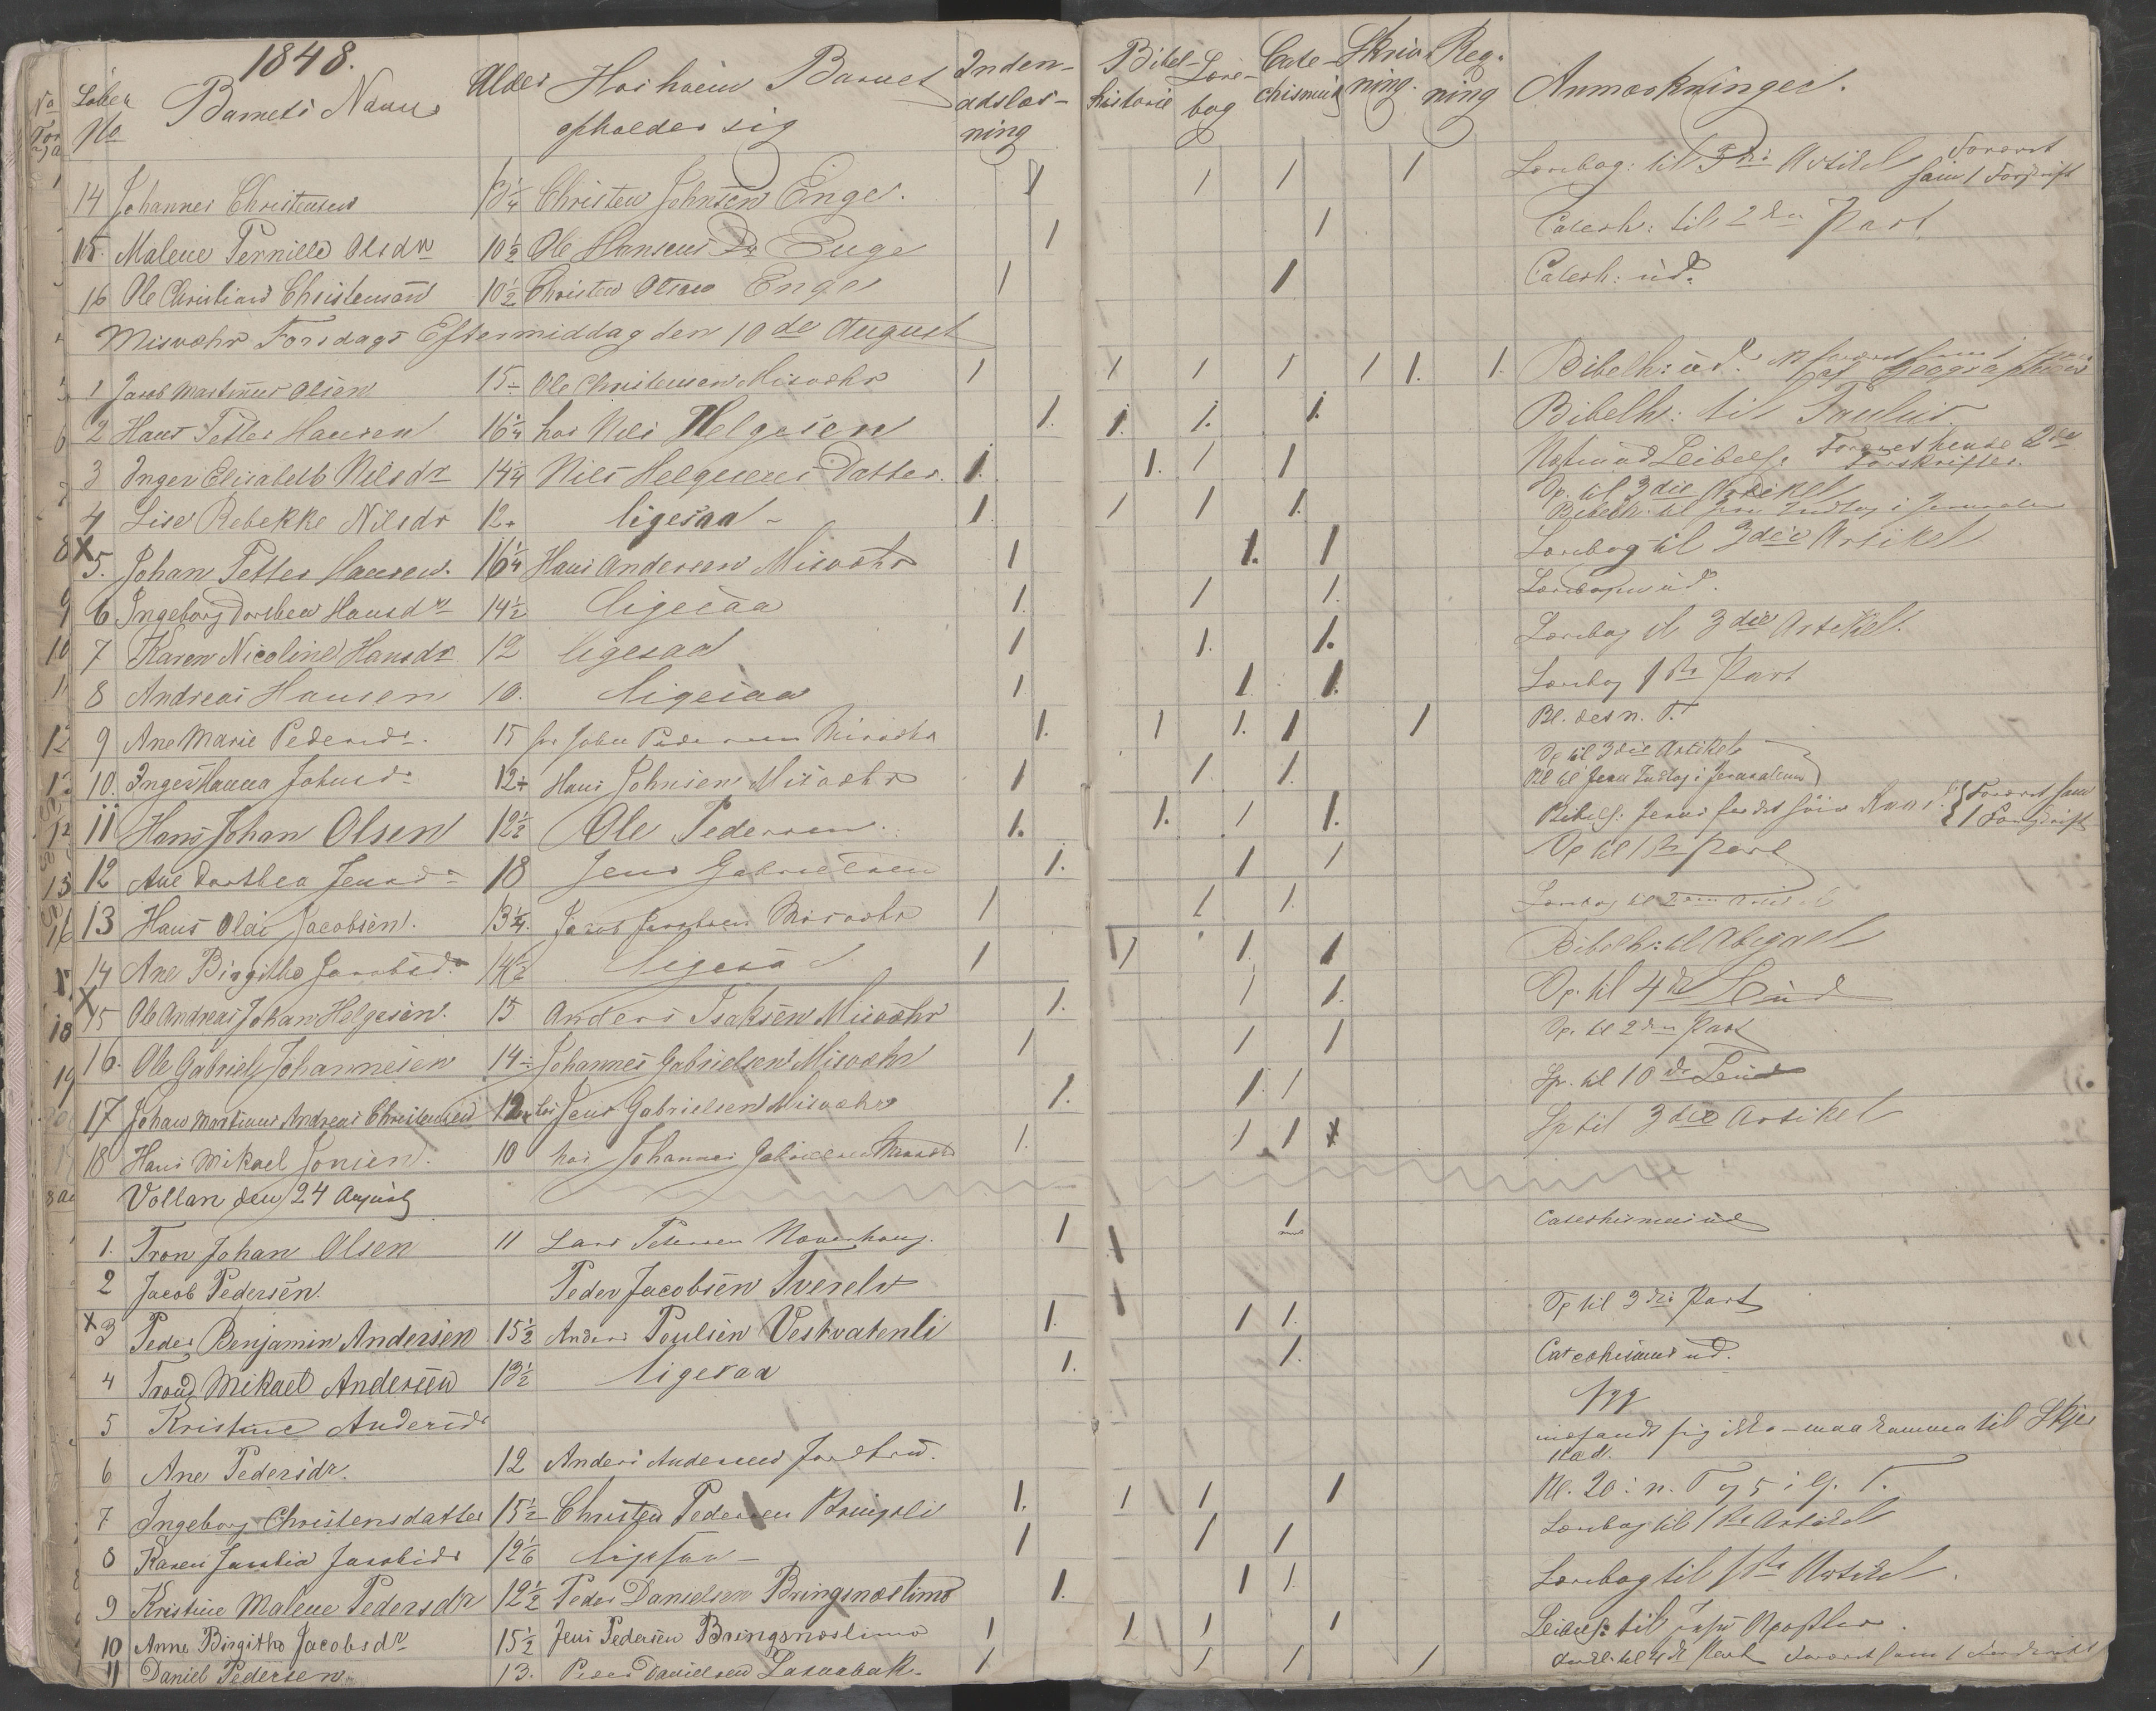 1848.
Løbe No Barnets Navn Alder Hos hvem Barnet opholder sig Indenadslæsning Bibelhistorie Lærebog Catechismus Skrivning. Regning Anmærkninger.
14 Johannes Christensen 13 1/4 Christen Johnsen Enge. 1 1 1 1 Lærebog: til 3die Artikel Foræret ham 1 Forskrift
15. Malene Pernille Olsdr 10 1/2 Ole Hansens Dr Enge 1 1 Catech: til 2den Part
16 Ole Christian Christensen 10 1/2 Christen Olsen Enge 1 1 Catech: ud.
Misvær Torsdags Eftermiddag den 10de August
1 Jacob Martinus Olsen 15 Ole Christensen Misvær 1 1 1 1 1 1. 1. Bibelh: ud.
2 Hans Petter Hansen 16 1/4 hos Nils Helgesen 1. 1. 1. 1. Bibelh: til Paulus
3 Inger Elisabeth Nilsdr 14 1/4 Nils Helgesens Datter. 1. 1. 1 1 Foræret hende 2de Forskrifter.
4 Lise Rebekke Nilsdr 12 ligesaa 1 1 1 1. Op. til 3die Artikel
Bibelh. til Indtog i Jerusalem
x 5. Johan Petter Hansen. 16 1/4 Hans Andersen Misvær 1 1. 1 Lærebog til 3die Artikel
6 Ingeborg Dorthea Hansdr 14 1/2 ligesaa 1. 1 1. Lærebogen ud.
7 Karen Nicoline Hansdr 12 ligesaa 1 1. 1. Lærebog til 3die Artikel.
8 Andreas Hansen 10. ligesaa 1 1 1. Lærebog 1ste Part
9 Ane Marie Pedersdr. 15 Pedersen Misvær 1. 1 1. 1 1 Bl. des n. T.
10. Inger Hanna Johnsdr 12 Hans Johnsen Misvær 1 1. 1. Op til 3die Artikel
Bl til Jesu Indtog i Jerusalem
11 Hans Johan Olsen 12 1/2 Ole Pedersen. 1. 1. 1 1. Foræret ham 1 Forskrift
12 Ane Dorthea Jensdr 18 Jens Gabrielsen 1. 1 1 Op til 1ste Part
13 Hans Olai Jacobsen. 13 1/4. Jacob Jacobsen Misvær 1 1 1. Lærebog til 2den Artikel
14 Ane Birgitha Jacobsdr 14 1/2 ligesaa 1 1 1. 1 Bibelh: til Abigael
x 15 Ole Andreas Johan Helgesen. 15 Anders Isaksen Misvær 1. 1 1. Op. til 4de Bud
16. Ole Gabriel Johannesen 14 Johannes Gabrielsen Misvær 1 1 1 Op. til 2den Part
17 Johan Martinus Andreas Christensen 12 hos Jens Gabrielsen Misvær 1. 1. 1 Op. til 10de Bud
18 Hans Mikael Jonsen. 10 hos Johannes Gabrielsen Misvær 1. 1 1 Op til 3die Artikel
Vollan den 24 August
1. Tron Johan Olsen 11 Lars Petersen Noverhaug. 1 1 1 Catechismus ud
2 Jacob Pedersen. Peder Jacobsen Tverelv 1
x 3 Peder Benjamin Andersen 15 1/2 Anders Poulsen Vestvatenli 1. 1 1. Op til 3die Part
4 Trond Mikael Andersen 13 1/2 ligesaa 1. 1. Catechismus ud.
5 Kristine Andersdr syg
6 Ane Pedersdr. 12 Anders Andersen Jordbrud. indfandt sig ikke - maa komme til Skjerstad.
7 Ingeborg Christensdatter 15 1/2 Christen Pedersen Bringsli 1. 1 1 1
8 Karen Jacobia Jacobsdr 12 1/6 ligesaa 1 1 1 Lærebog til 1ste Artikel
9 Kristine Malene Pedersdr 12 1/2 Peder Danielsen Bringsnæslimo 1. 1 1 Lærebog til 1ste Artikel.
10 Anne Birgitha Jacobsdr 15 1/2 Jens Pedersen Bringsnæslimo 1 1 1 1 til Jesu Apostler.
11 Daniel Pedersen 13. Peder Danielsen 1 1 1 1 til 4de Part Foræret ham 1 Forskrift